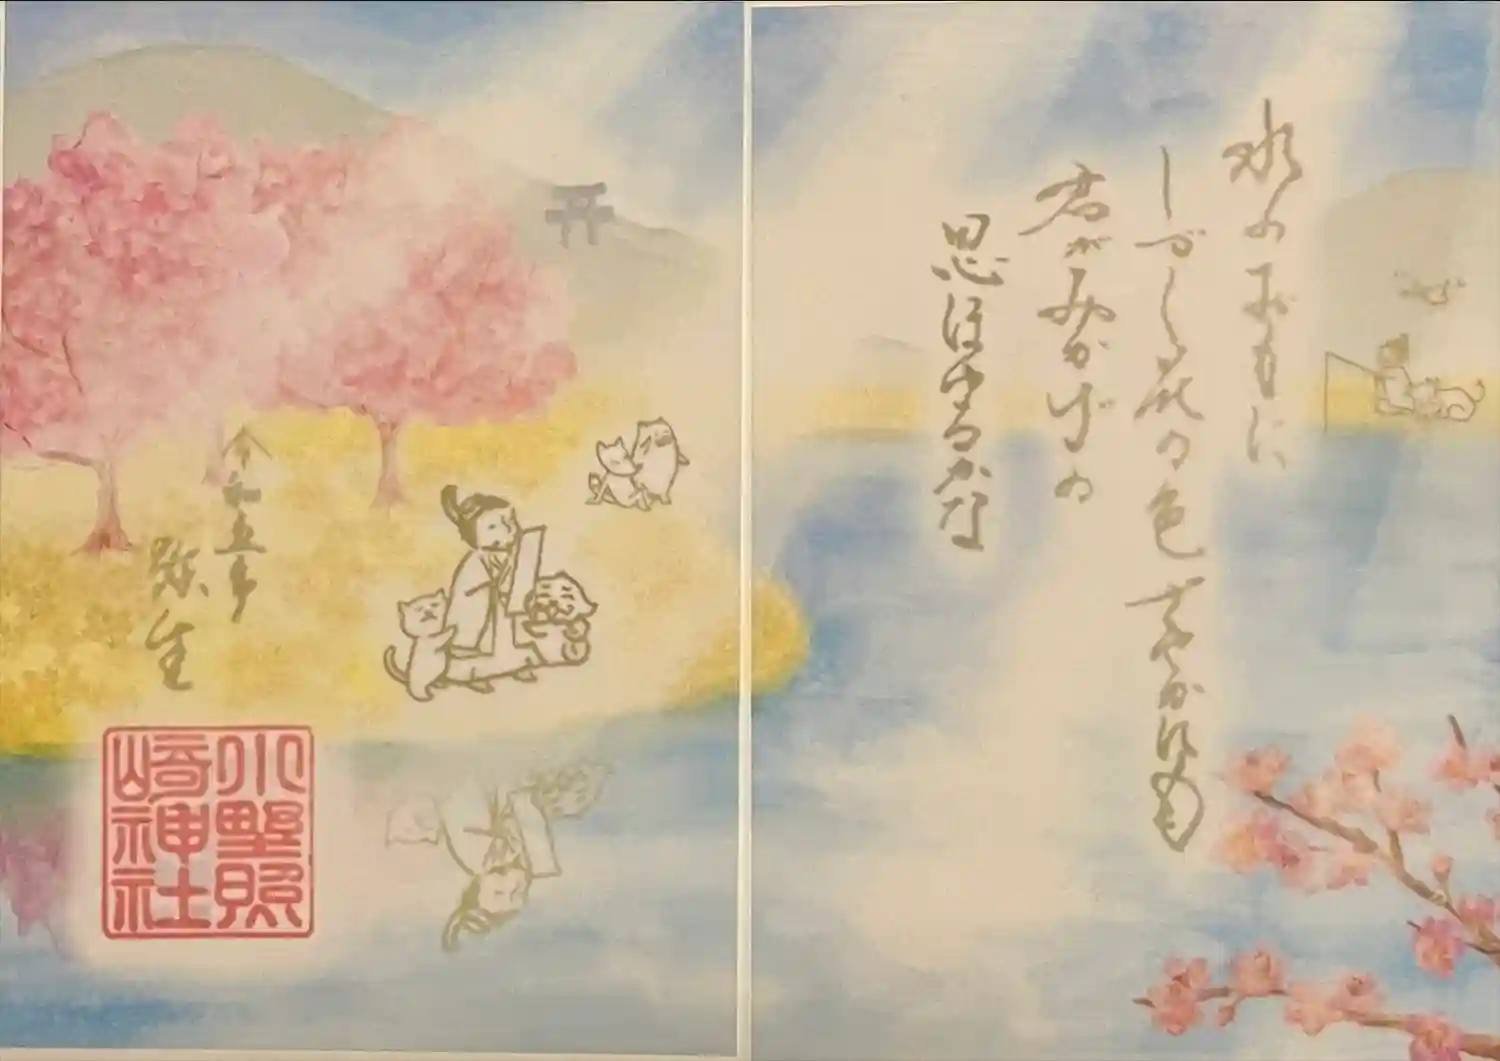 水のおもに
しづく花の色
さやかにも
君がみかげの
思ほゆるかな
令和五年
弥生
小野照
崎神社